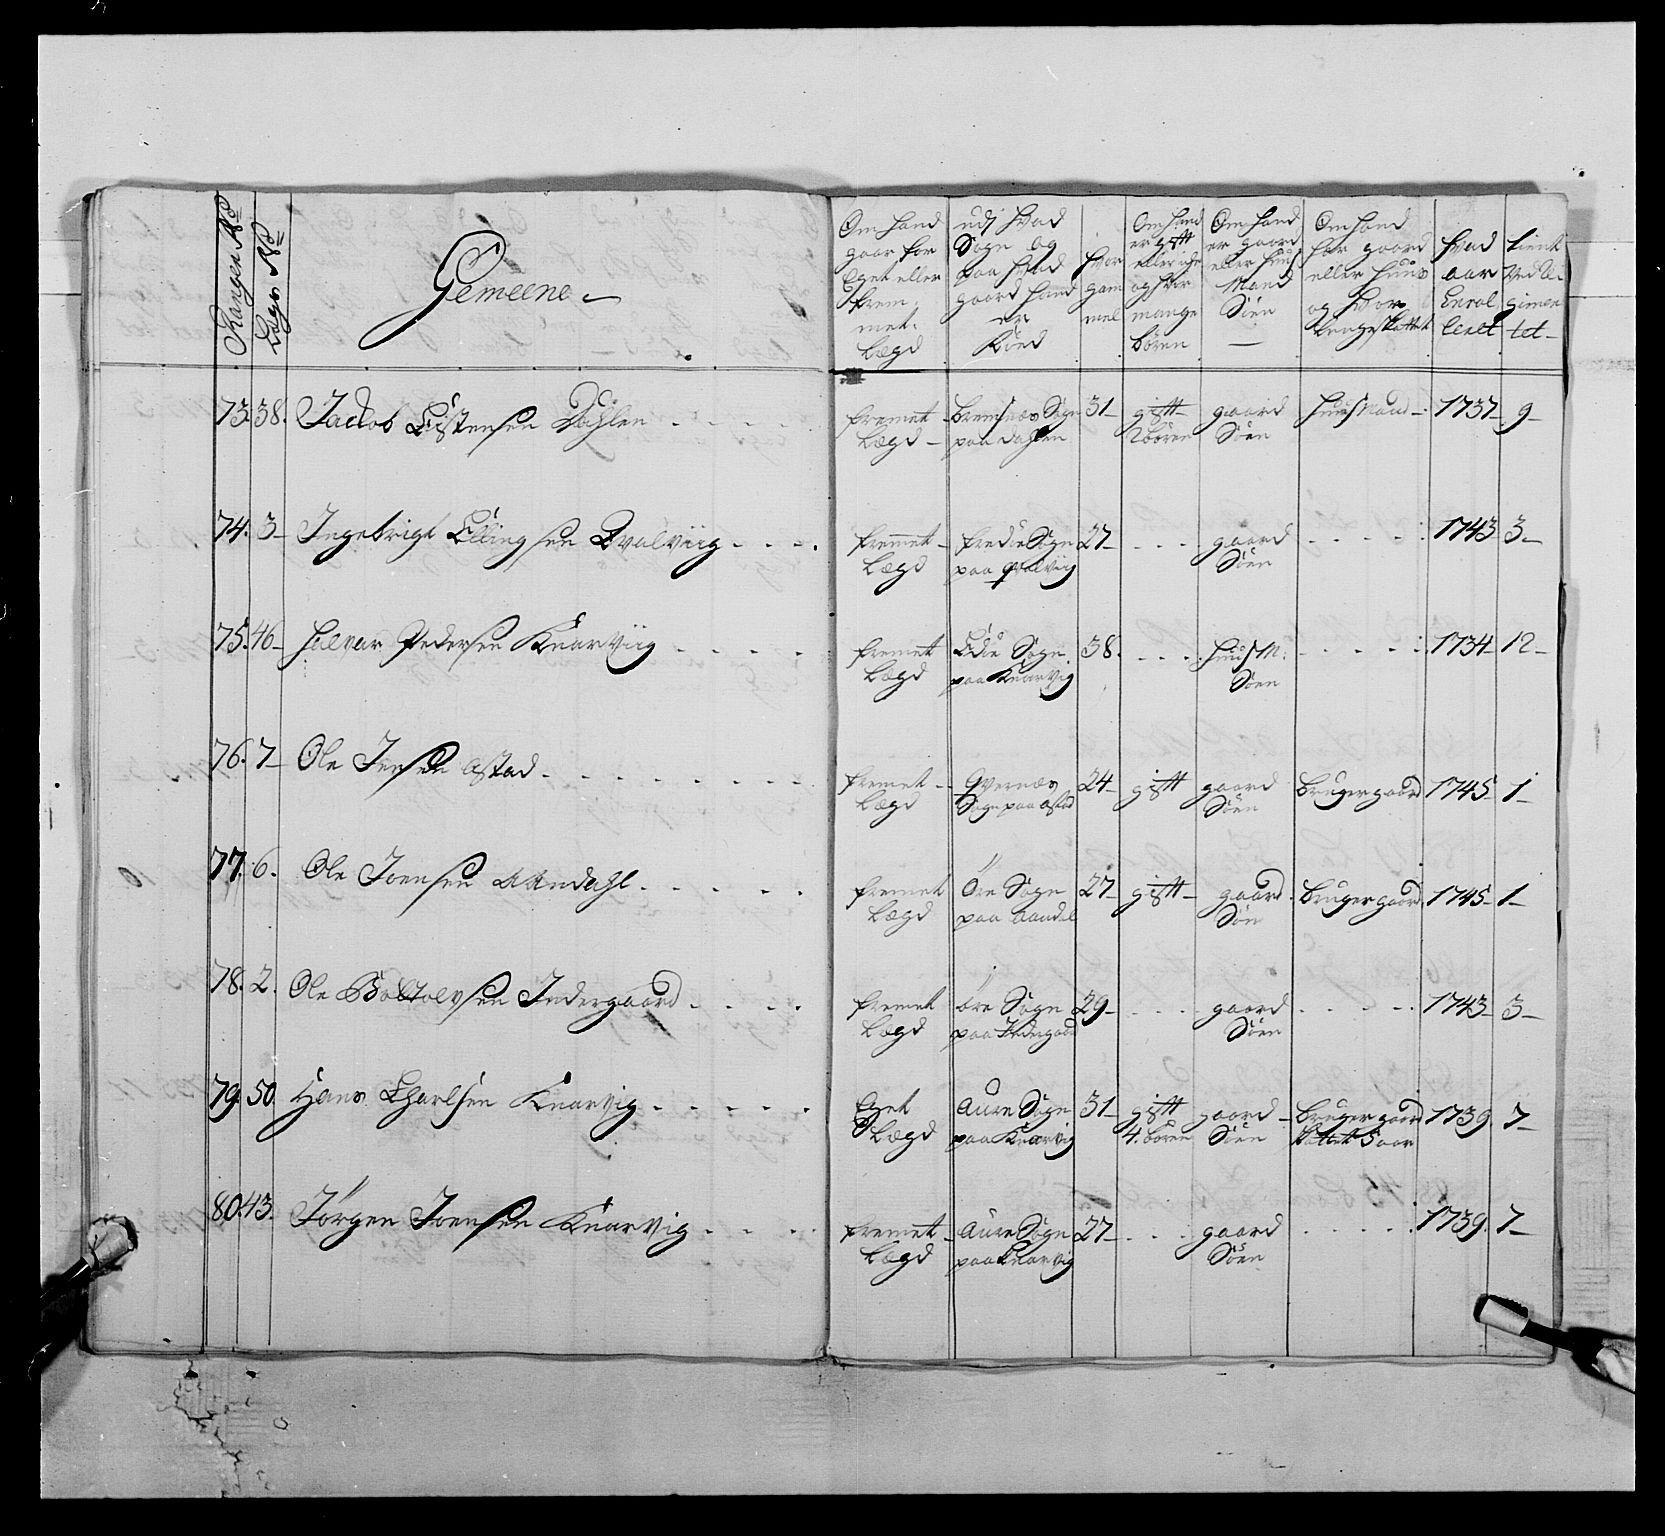 Rangen No
Lægs No
Gemeene
Om hand gaar for Eget eller fremmet Lægd
udj hvad Sogn og paa hvad gaard hand er Föed
hvor gammel
Om hand er gift eller eige og hvor mange bören
Om hand er gaard eller huus Mand Söen
Om hand har gaard eller huus og hvor lenge skattet
hvad aar Enrolleret
tient ved Regimentet
73. 38. Jackob Eistensen Dahlen fremet Lægd Bremsnes Sogn paa Dahlen 31 gift 2 bören gaard Söen huusMand 1737 9
74. 3 Ingebrigt Ellingsen Qvalviig fremet Lægd fredöe Sogn paa qvalviig 27 gaard Söen 1743 3
75. 46 Halvar Pedersen Knarviig fremet Lægd Edöe Sogn paa Knarvig 38. huusM: Söen 1734 12
76. 7 Ole Jensen Astad fremet Lægd Qvernæs Sogn paa Astad 24 gift gaard Söen Bruger gaard 1745 1
77. 6. Ole Joensen Aandahl fremet Lægd Öre Sogn paa Aandal 27 gift gaard Söen Bruger gaard 1745 1
78. 2. Ole Botolvsen Indergaard fremet Lægd öre Sogn paa Indergaard 29 gaard Söen 1743 3
79. 50. Hans Charlsen Knarvig Eget Lægd Aure Sogn paa Knarvig 31 gift 4. bören gaard Söen Bruger gaard skattet 5 aar 1739. 7
80. 43. Jörgen Joensen Knarvig fremet Lægd Aure Sogn paa Knarvig 27 gaard Söen 1739. 7